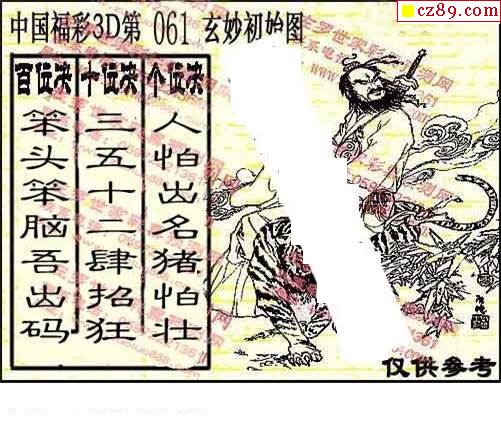 cz89.com
中国福彩3D第 061 玄妙初始图
百位决 十位决 个位决
笨头笨脑吾出码
三五十二肆招狂
人怕出名猪怕壮
仅供参考